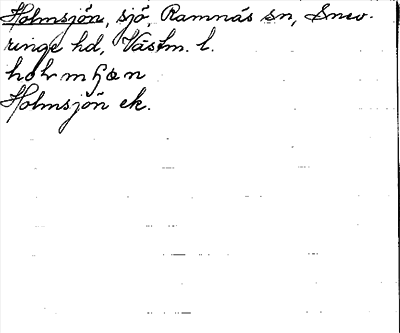 Holmsjön, sjö, Ramnäs sn, Snev-
ringe hd, Västm. l.
Holmsjön ek.